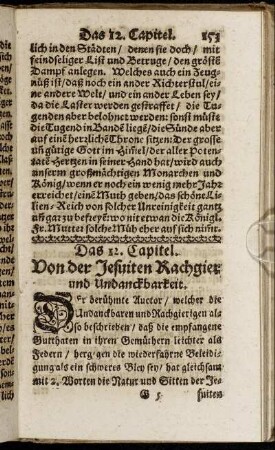 Das 12. Capitel. 153
lich in den Städten / denen sie doch / mit
feindseliger List und Betruge / den gröste
Dampf anlegen. Welches auch ein Zeug-
nüß ist / daß noch ein ander Richterstul / ei-
ne andere Welt / und ein ander Leben sey /
da die Laster werden gestraffet / die Tu-
genden aber belohnet werden: sonst müste
die Tugend in Bandē liegē / die Sünde aber
auf einē herꝛlichē Throne sitzen: Der grosse
un̄ gütige Gott im Him̄el / der aller Poten-
taten Hertzen in seiner Hand hat / wird auch
unserm großmächtigen Monarchen und
König / wenn er noch ein wenig mehr Jahr
erreichet / einē Muth geben / das schöne Lili-
en-Reich von solcher Unreinigkeit gantz
un̄ gar zu befreyē: wo nit etwan die Königl.
Fr. Mutter solche Müh eher auf sich nimt.
Das 12. Capitel.
Von der Jesuiten Rachgier
und Undanckbarkeit.
Der berühmte Auctor / welcher die
Undanckbaren und Rachgierigen al-
so beschrieben / daß die empfangene
Gutthaten in ihren Gemüthern leichter als
Federn / hergegen die wiederfahrne Beleidi-
gung als ein schweres Bley sey / hat gleichsam
mit 2. Worten die Natur und Sitten der Je-
G 5 suiten